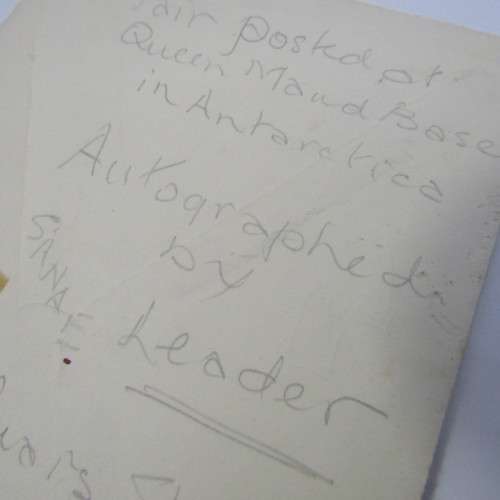 Pair posted at
Queen Maud Base
in Antarctica
Autographed
by
SANAE
Leader